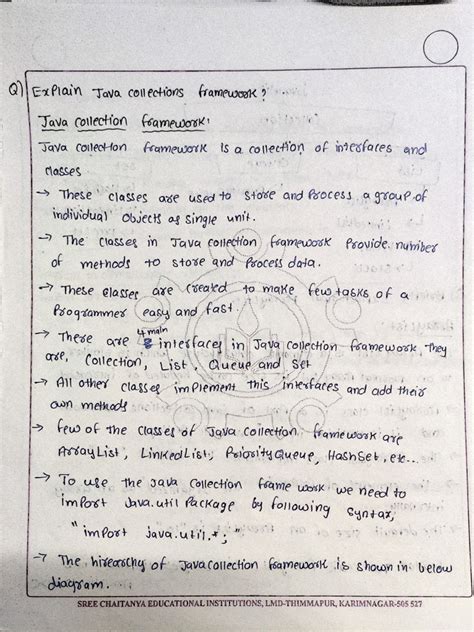 Q) Explain Java collections framework?
Java collection framework:
Java collection framework is a collection of interfaces and
classes
→ These classes are used to store and process a group of
individual objects as single unit.
→ The classes in Java collection framework provide number
of methods to store and process data.
→ These classes are created to make few tasks of a
Programmer easy and fast.
→ There are 4 main interfaces in Java collection framework, They
are, Collection, List, Queue and Set
→ All other classes implement this interfaces and add their
own methods
→ few of the classes of Java collection framework are
ArrayList, LinkedList, PriorityQueue, HashSet, etc...
→ To use the java collection frame work we need to
import Java.util package by following syntax,
"import java.util.*;
→ The hirearchy of Java collection framework is shown in below
diagram.
SREE CHAITANYA EDUCATIONAL INSTITUTIONS, LMD-THIMMAPUR, KARIMNAGAR-505 527